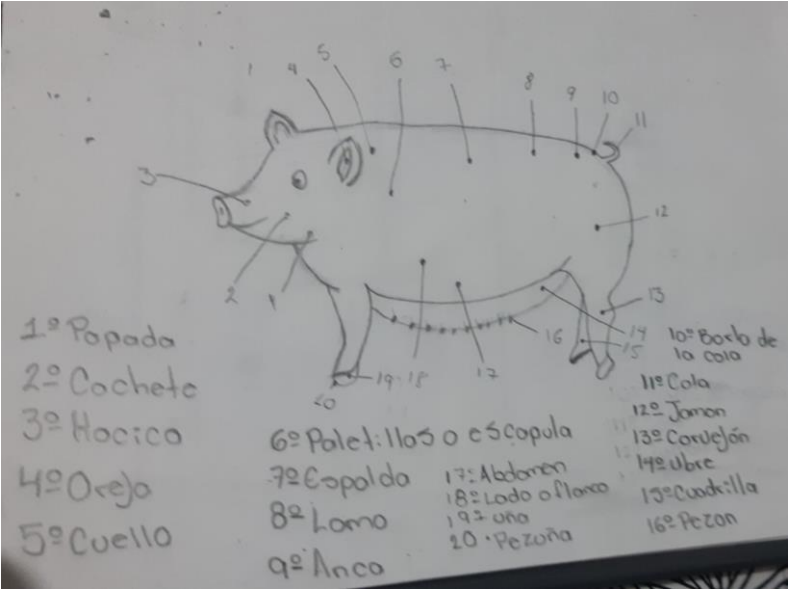 5
6
7
4
8
9
10
11
3
12
2
1
13
14
15
16
17
18
19
20
1º Papada
2º Cachete
3º Hocico
4º Oreja
5º Cuello
6º Paletillas o escapula
7º Espalda
8º Lomo
9º Anca
17º Abdomen
18º Lado o flanco
19º uña
20. Pezuña
10º Borla de
la cola
11º Cola
12º Jamon
13º Corvejón
14º Ubre
15º Cuadrilla
16º Pezon